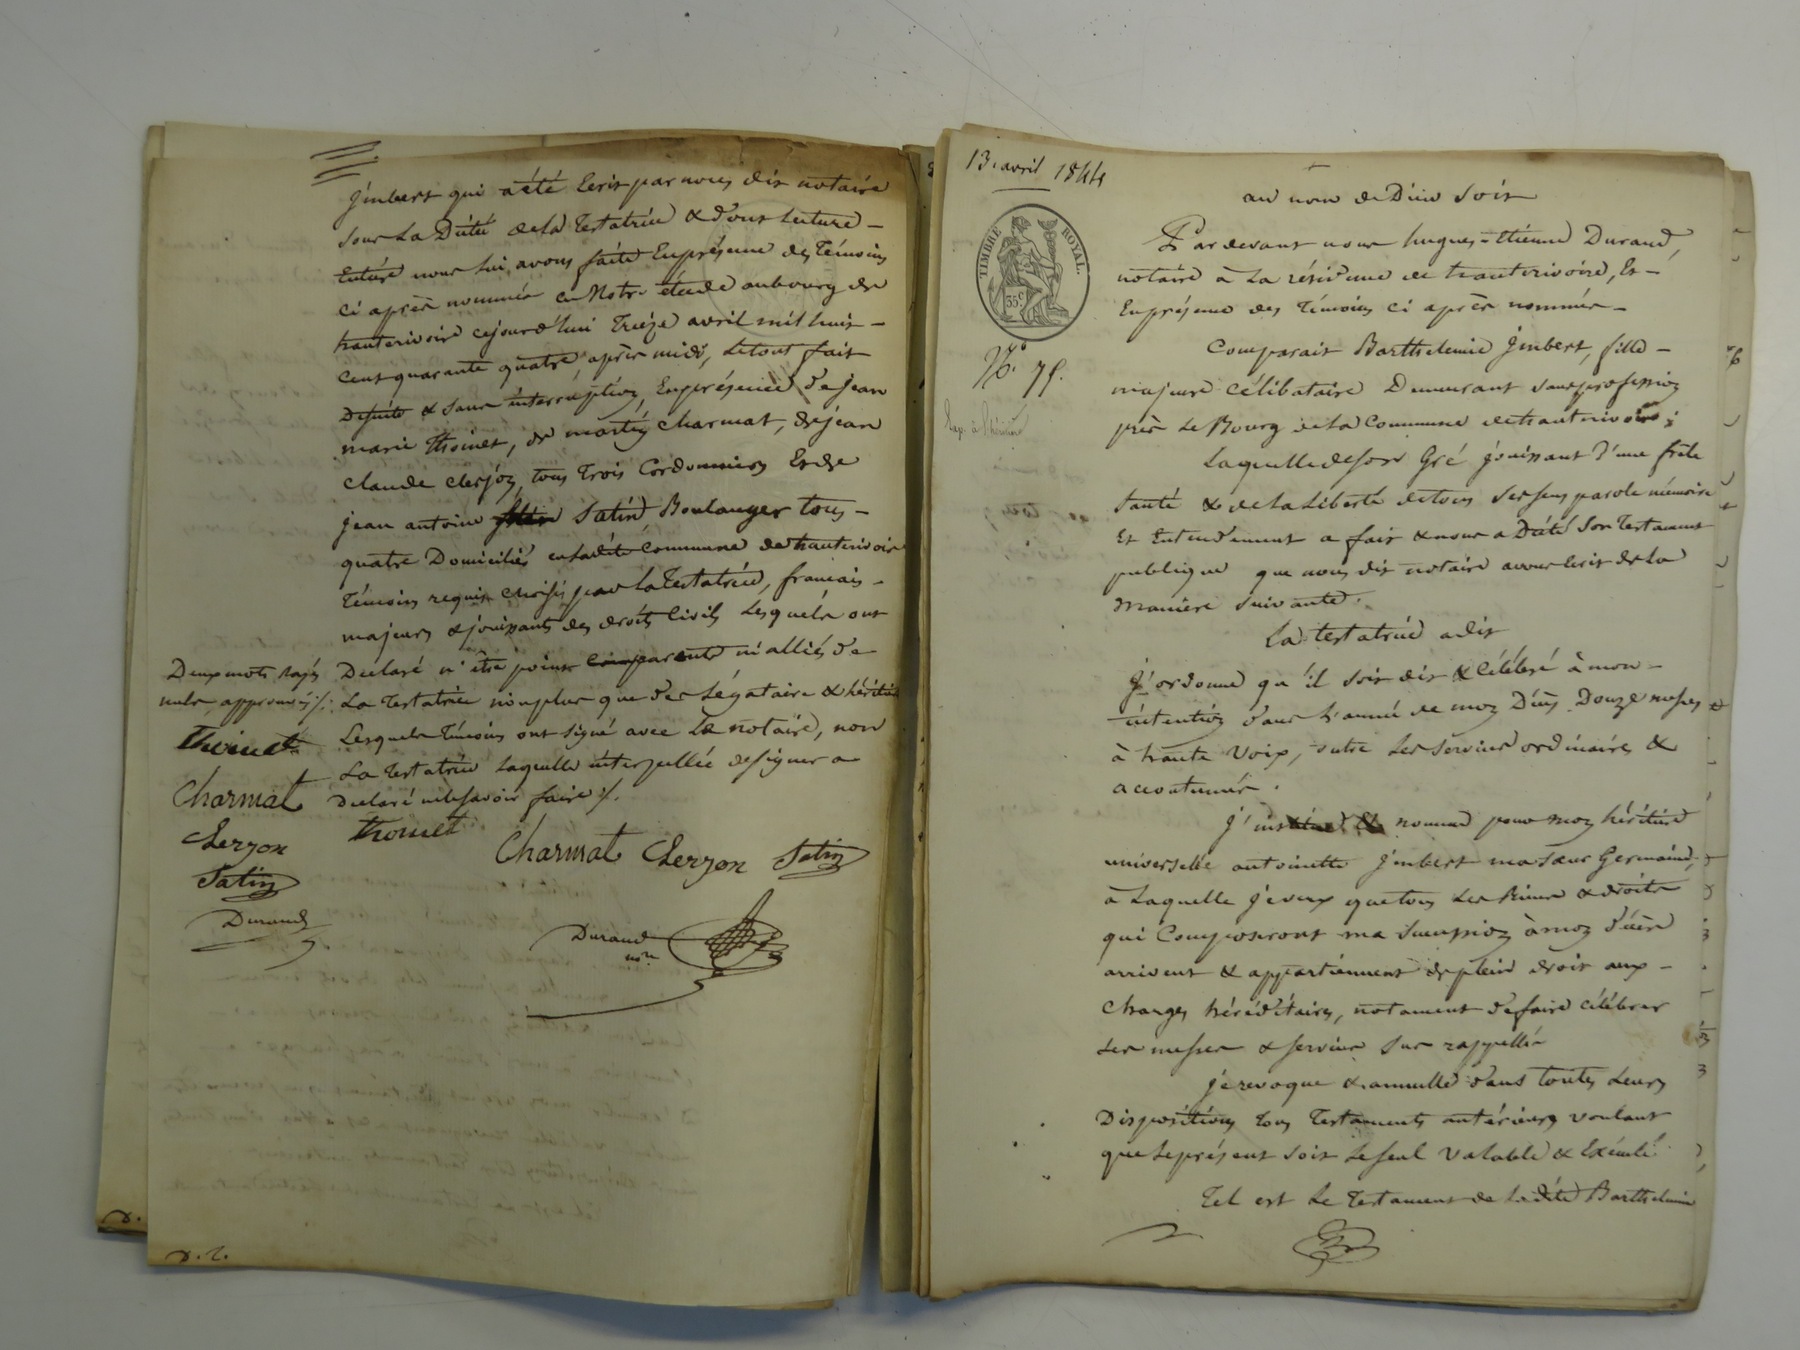 Jmbert qui a été Ecrit par nous dit notaire
sous La Dictée de la Testatrice & dont Lecture -
Entière nous lui avons faite En présence des Témoins
ci après nommés en Notre étude au bourg de
hauterivoire cejourd'hui Treize avril mil huit -
cent quarante quatre, après midi, Le tout fait
De suite & sans interruption, En présence de jean
marie Thoinet, de martin Charmat, de jean
claude clerjon, tous Trois Cordonniers Et de
jean antoine Satin Boulanger tous -
quatre Domiciliés en Ladite Commune de hauterivoire
Témoins requis choisis par la Testatrice, francais -
majeurs & jouissants des droits Civils Lesquels ont
Déclaré n'être point parents ni alliés de
La Testatrice non plus que des Légataire & héritière
Lesquels Témoins ont signé avec Le notaire, non
La Testatrice Laquelle interpellée de signer a
Declaré ne le savoir faire ./.
Deux mots rayés
nuls approuvés ./.
Thoinet
Charmat
Clerjon
Satin
Durand
Thoinet Charmat Clerjon Satin
Durand
nore
13. avril 1844
TIMBRE ROYAL.
35c
No. 75.
au nom de Dieu Soit
Pardevant nous hugues-Etienne Durand,
notaire à La résidence de hauterivoire, Et -
En présence des Témoins ci après nommés -
Comparait Barthelemie Jmbert, fille -
majeure célibataire Demeurant sans profession
près Le Bourg de la Commune de hauterivoire ;
Laquelle de son Gré jouissant d'une frêle
santé & de la Liberté de tous ses sens parole mémoire
Et Entendement a fait & nous a Dicté son Testament
publique que nous dit notaire avons Ecrit de La
manière suivante.
La testatrice a dit
J'ordonne qu'il soit dit & Célébré à mon -
intention dans L'année de mon Décès Douze messes
à haute Voix, outre Les services ordinaires &
accoutumés.
J'institue & nomme pour mon héritière
universelle antoinette Jmbert ma sœur Germaine,
à Laquelle je veux que tous Les Biens & droits
qui Composeront ma succession à mon décès
arrivent & appartiennent de plein droit aux -
Charges héréditaires, notament de faire célébrer
Les messes & services sus rappellés
je revoque & annulle dans toutes Leurs
Dispositions tous Testaments antérieurs voulant
que Le présent soit Le seul valable & Exécuté.
Tel est Le Testament de Ladite Barthelemie